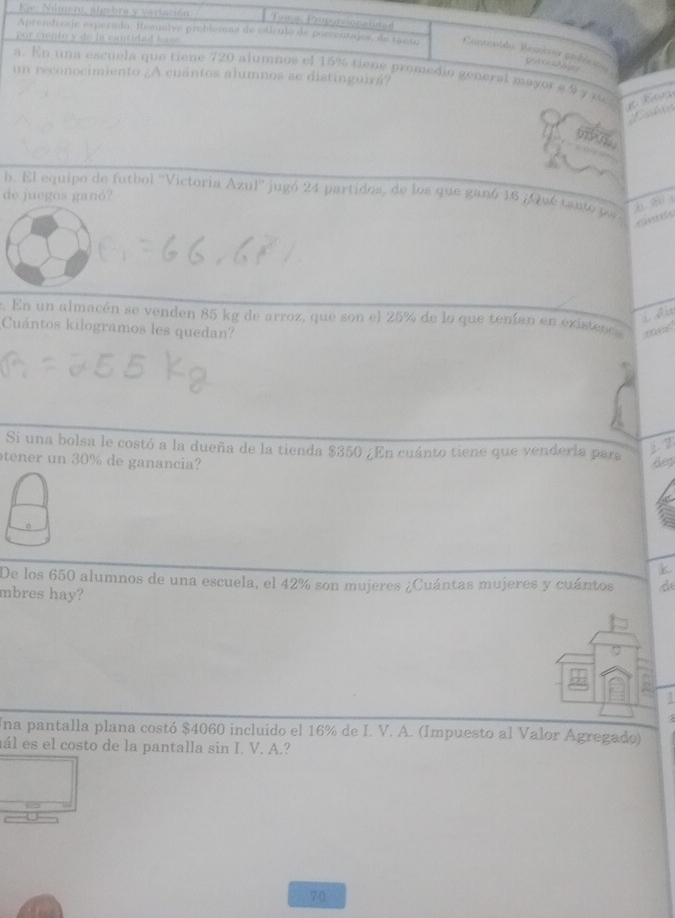 Eje: Número, álgebra y variación
Tema: Proporcionalidad
Aprendizaje esperado. Resuelve problemas de cálculo de porcentajes, de tanto
por ciento y de la cantidad base.
Contenido: Resolver
a. En una escuela que tiene 720 alumnos el 15% tiene promedio general mayor a 9 y
un reconocimiento ¿A cuántos alumnos se distinguirá?
b. El equipo de futbol "Victoria Azul" jugó 24 partidos, de los que ganó 16 ¿Qué tanto por
de juegos ganó?
R. = 66.6%
. En un almacén se venden 85 kg de arroz, que son el 25% de lo que tenían en existencia
¿Cuántos kilogramos les quedan?
R. = 255 kg
Si una bolsa le costó a la dueña de la tienda $350 ¿En cuánto tiene que venderla para
btener un 30% de ganancia?
De los 650 alumnos de una escuela, el 42% son mujeres ¿Cuántas mujeres y cuántos
mbres hay?
Una pantalla plana costó $4060 incluido el 16% de I. V. A. (Impuesto al Valor Agregado)
ál es el costo de la pantalla sin I. V. A.?
k.
de
70